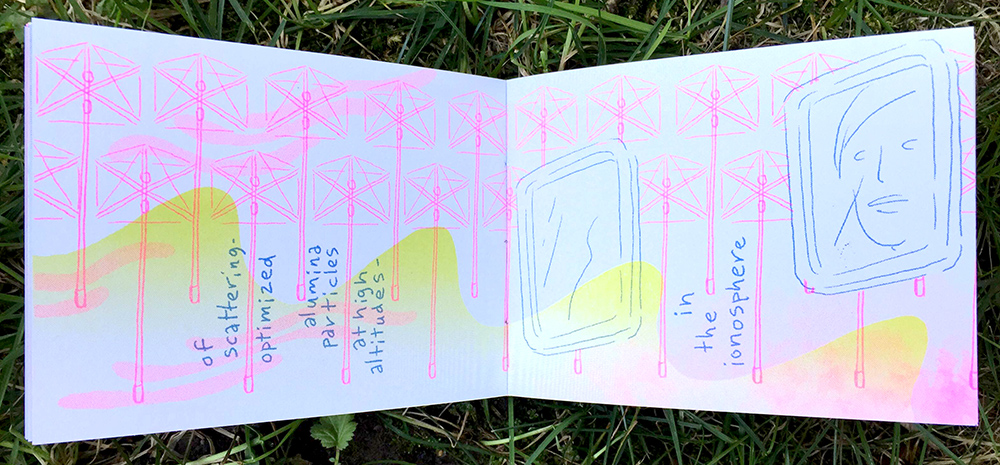 of
scattering-
optimized
alumina
particles
at high
altitudes-
in
the
ionosphere